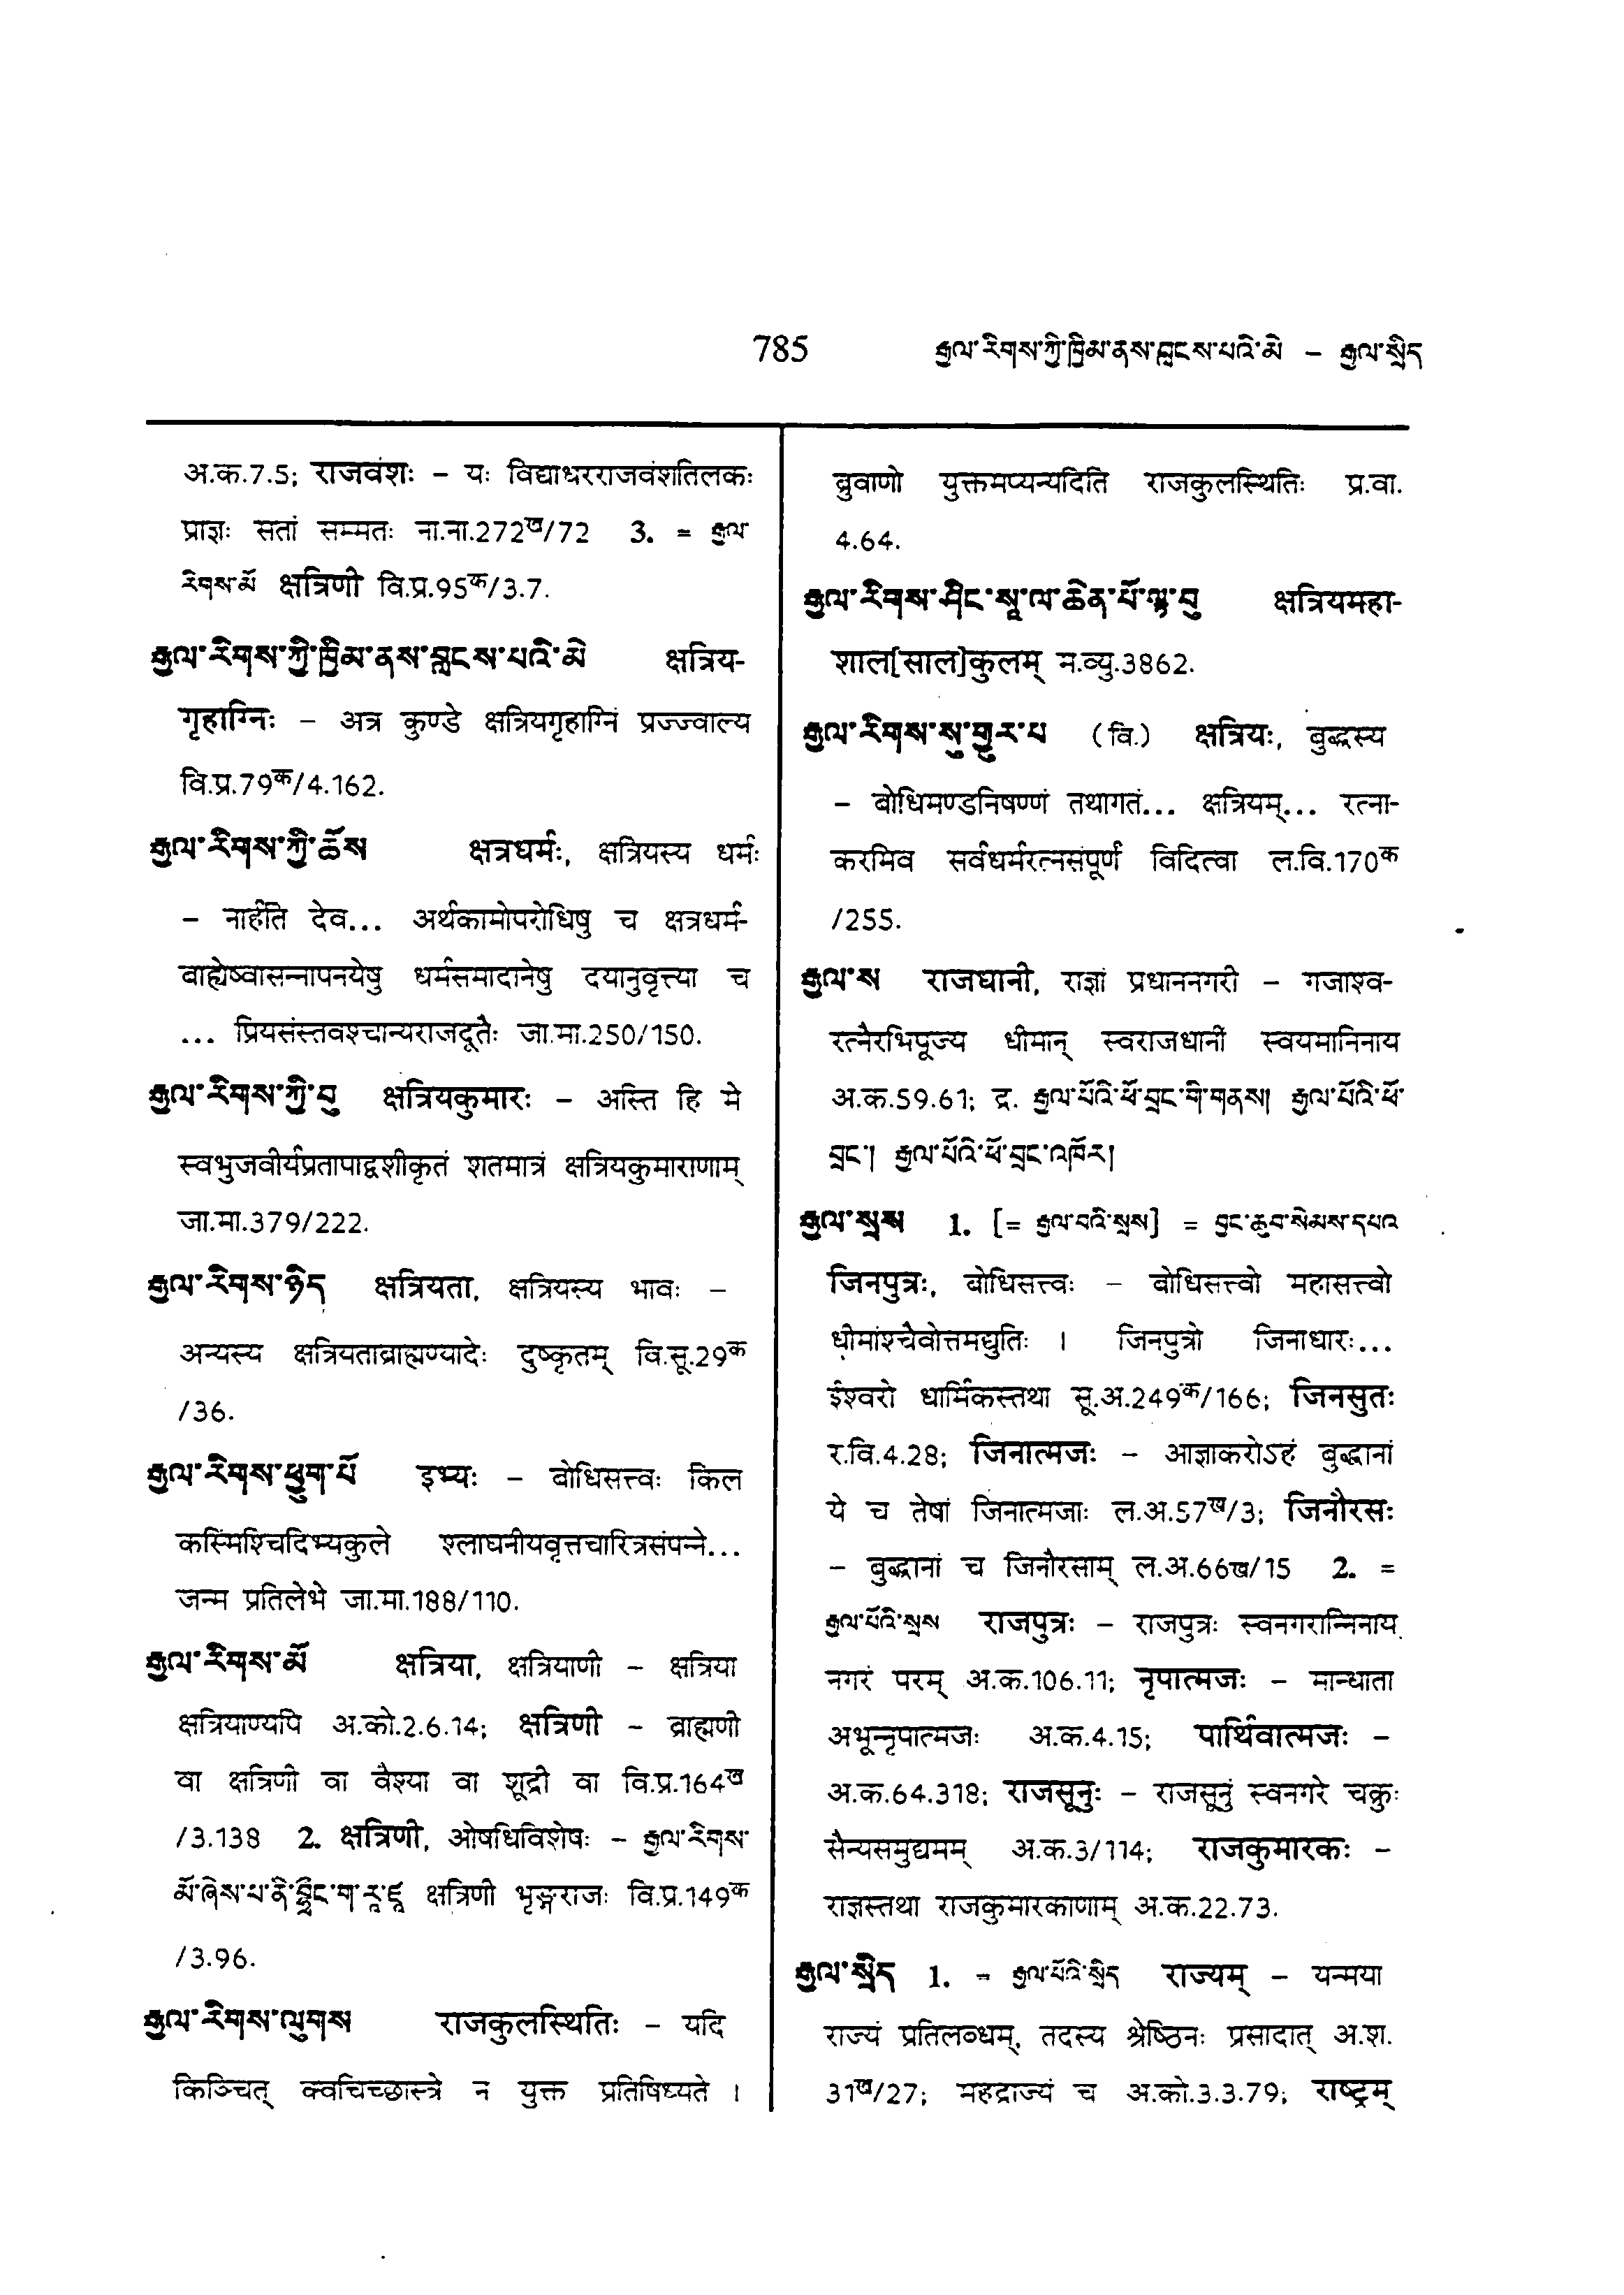 785 རྒྱལ་རིགས་ཀྱི་ཁྱིམ་ནས་བླངས་པའི་མེ – རྒྱལ་སྲིད
अ.क.7.5; राजवंशः – यः विद्याधरराजवंशतिलकः
प्राज्ञः सतां सम्मतः ना.ना.272ख/72 3. = རྒྱལ་
རིགས་མོ क्षत्रिणी वि.प्र.95क/3.7.
རྒྱལ་རིགས་ཀྱི་ཁྱིམ་ནས་བླངས་པའི་མེ क्षत्रिय-
गृहाग्निः – अत्र कुण्डे क्षत्रियगृहाग्निं प्रज्ज्वाल्य
वि.प्र.79क/4.162.
རྒྱལ་རིགས་ཀྱི་ཆོས क्षत्रधर्मः, क्षत्रियस्य धर्मः
– नार्हति देव... अर्थकामोपरोधिषु च क्षत्रधर्म-
बाह्येष्वासन्नापनयेषु धर्मसमादानेषु दयानुवृत्त्या च
... प्रियसंस्तवश्चान्यराजदूतैः जा.मा.250/150.
རྒྱལ་རིགས་ཀྱི་བུ क्षत्रियकुमारः – अस्ति हि मे
स्वभुजवीर्यप्रतापाद्वशीकृतं शतमात्रं क्षत्रियकुमाराणाम्
जा.मा.379/222.
རྒྱལ་རིགས་ཉིད क्षत्रियता, क्षत्रियस्य भावः –
अन्यस्य क्षत्रियताब्राह्मण्यादेः दुष्कृतम् वि.सू.29क
/36.
རྒྱལ་རིགས་ཕྱུག་པོ इभ्यः – बोधिसत्त्वः किल
कस्मिंश्चिदिभ्यकुले श्लाघनीयवृत्तचारित्रसंपन्ने...
जन्म प्रतिलेभे जा.मा.188/110.
རྒྱལ་རིགས་མོ क्षत्रिया, क्षत्रियाणी – क्षत्रिया
क्षत्रियाण्यपि अ.को.2.6.14; क्षत्रिणी – ब्राह्मणी
वा क्षत्रिणी वा वैश्या वा शूद्री वा वि.प्र.164ख
/3.138 2. क्षत्रिणी, ओषधिविशेषः – རྒྱལ་རིགས་
མོ་ཞེས་པ་ནི་བྷྲིང་ག་རཱ་ཛཱ क्षत्रिणी भृङ्गराजः वि.प्र.149क
/3.96.
རྒྱལ་རིགས་ལུགས राजकुलस्थितिः – यदि
किञ्चित् क्वचिच्छास्त्रे न युक्त प्रतिषिध्यते ।
ब्रुवाणो युक्तमप्यन्यदिति राजकुलस्थितिः प्र.वा.
4.64.
རྒྱལ་རིགས་ཤིང་སཱ་ལ་ཆེན་པོ་ལྟ་བུ क्षत्रियमहा-
शाल[साल]कुलम् म.व्यु.3862.
རྒྱལ་རིགས་སུ་གྱུར་པ (वि.) क्षत्रियः, बुद्धस्य
– बोधिमण्डनिषण्णं तथागतं... क्षत्रियम्... रत्ना-
करमिव सर्वधर्मरत्नसंपूर्णं विदित्वा ल.वि.170क
/255.
རྒྱལ་ས राजधानी, राज्ञां प्रधाननगरी – गजाश्व-
रत्नैरभिपूज्य धीमान् स्वराजधानीं स्वयमानिनाय
अ.क.59.61; द्र. རྒྱལ་པོའི་ཕོ་བྲང་གི་གནས། རྒྱལ་པོའི་ཕོ་
བྲང་། རྒྱལ་པོའི་ཕོ་བྲང་འཁོར།
རྒྱལ་སྲས 1. [= རྒྱལ་བའི་སྲས] = བྱང་ཆུབ་སེམས་དཔའ
जिनपुत्रः, बोधिसत्त्वः – बोधिसत्त्वो महासत्त्वो
धीमांश्चैवोत्तमद्युतिः । जिनपुत्रो जिनाधारः...
ईश्वरो धार्मिकस्तथा सू.अ.249क/166; जिनसुतः
र.वि.4.28; जिनात्मजः – आज्ञाकरोऽहं बुद्धानां
ये च तेषां जिनात्मजाः ल.अ.57ख/3; जिनौरसः
– बुद्धानां च जिनौरसाम् ल.अ.66ख/15 2. =
རྒྱལ་པོའི་སྲས राजपुत्रः – राजपुत्रः स्वनगरान्निनाय
नगरं परम् अ.क.106.11; नृपात्मजः – मान्धाता
अभून्नृपात्मजः अ.क.4.15; पार्थिवात्मजः –
अ.क.64.318; राजसूनुः – राजसूनुं स्वनगरे चक्रुः
सैन्यसमुद्यमम् अ.क.3/114; राजकुमारकः –
राज्ञस्तथा राजकुमारकाणाम् अ.क.22.73.
རྒྱལ་སྲིད 1. = རྒྱལ་པོའི་སྲིད राज्यम् – यन्मया
राज्यं प्रतिलब्धम्, तदस्य श्रेष्ठिनः प्रसादात् अ.श.
31ख/27; महद्राज्यं च अ.को.3.3.79; राष्ट्रम्